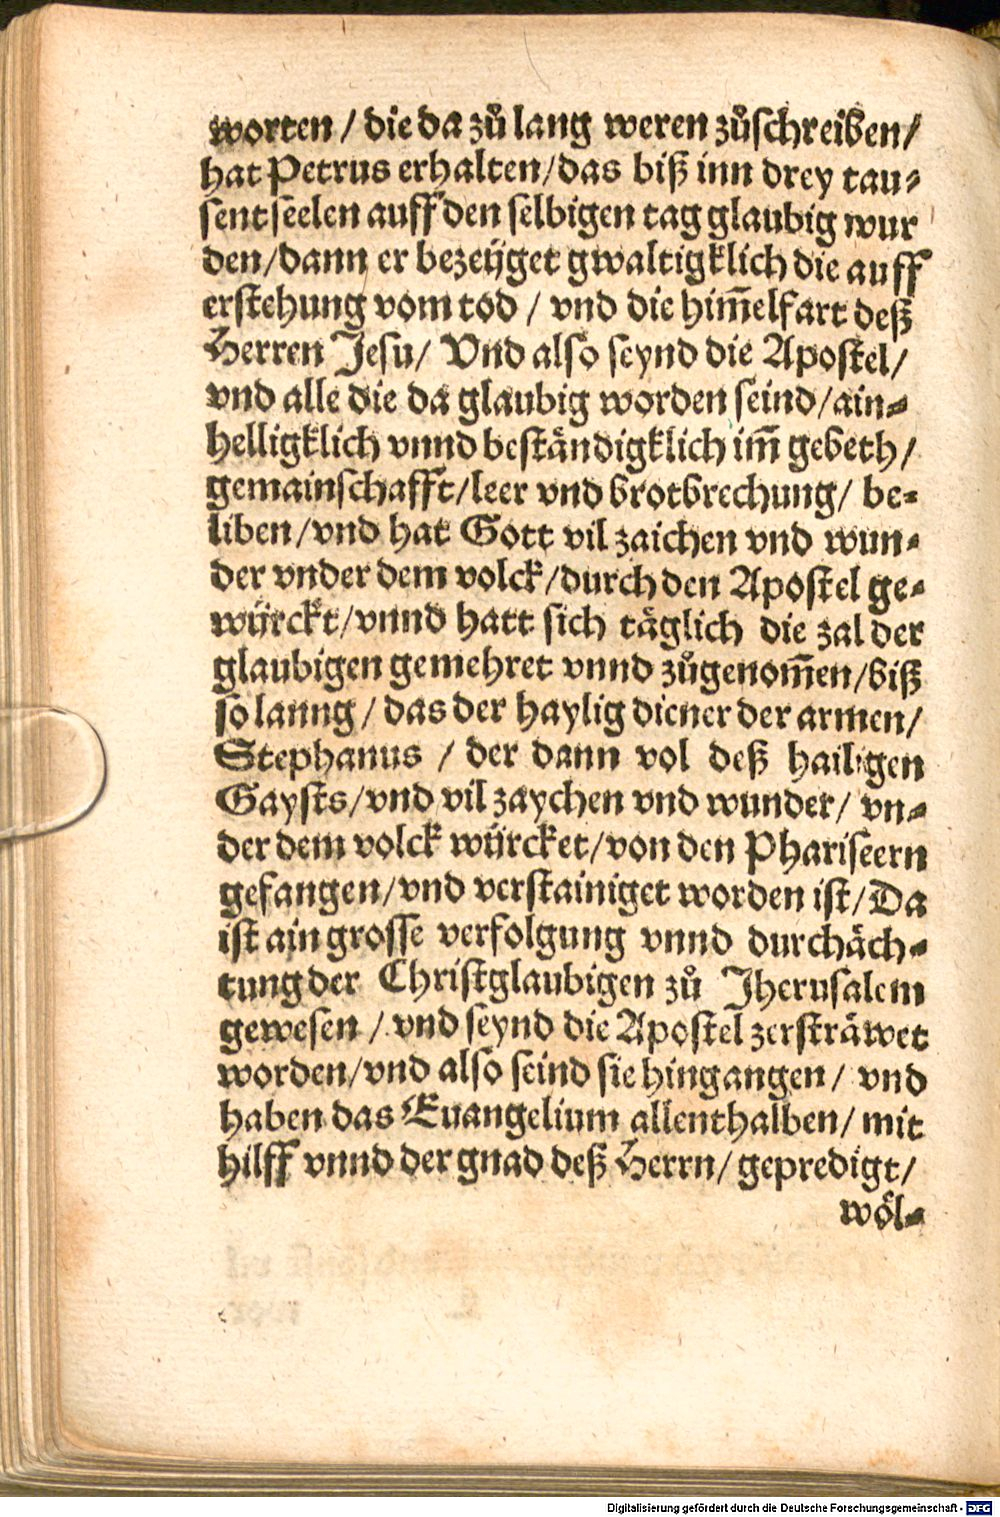 worten / die da zů lang weren zůschreiben/
hat Petrus erhalten/das biß inn drey tau⸗
sent seelen auff den selbigen tag glaubig wur
den/dann er bezeÿget gwaltigklich die auff
erstehung vom tod / vnd die him̃elfart deß
Herren Jesu/ Vnd also seynd die Apostel/
vnd alle die da glaubig worden seind/ain⸗
helligklich vnnd beständigklich im̃ gebeth/
gemainschafft/leer vnd brotbrechung/ be⸗
liben/vnd hat Gott vil zaichen vnd wun⸗
der vnder dem volck/durch den Apostel ge⸗
wÿrckt/vnnd hatt sich täglich die zal der
glaubigen gemehret vnnd zůgenom̃en/biß
so lanng / das der haylig diener der armen/
Stephanus / der dann vol deß hailigen
Gaysts/vnd vil zaychen vnd wunder/ vn⸗
der dem volck wÿrcket/von den Phariseern
gefangen/vnd verstainiget worden ist/Da
ist ain grosse verfolgung vnnd durchäch⸗
tung der Christglaubigen zů Jherusalem
gewesen / vnd seynd die Apostel zersträwet
worden/vnd also seind sie hingangen/ vnd
haben das Euangelium allenthalben/ mit
hilff vnnd der gnad deß Herrn/ gepredigt/
wöl⸗
Digitalisierung gefördert durch die Deutsche Forschungsgemeinschaft - DFG